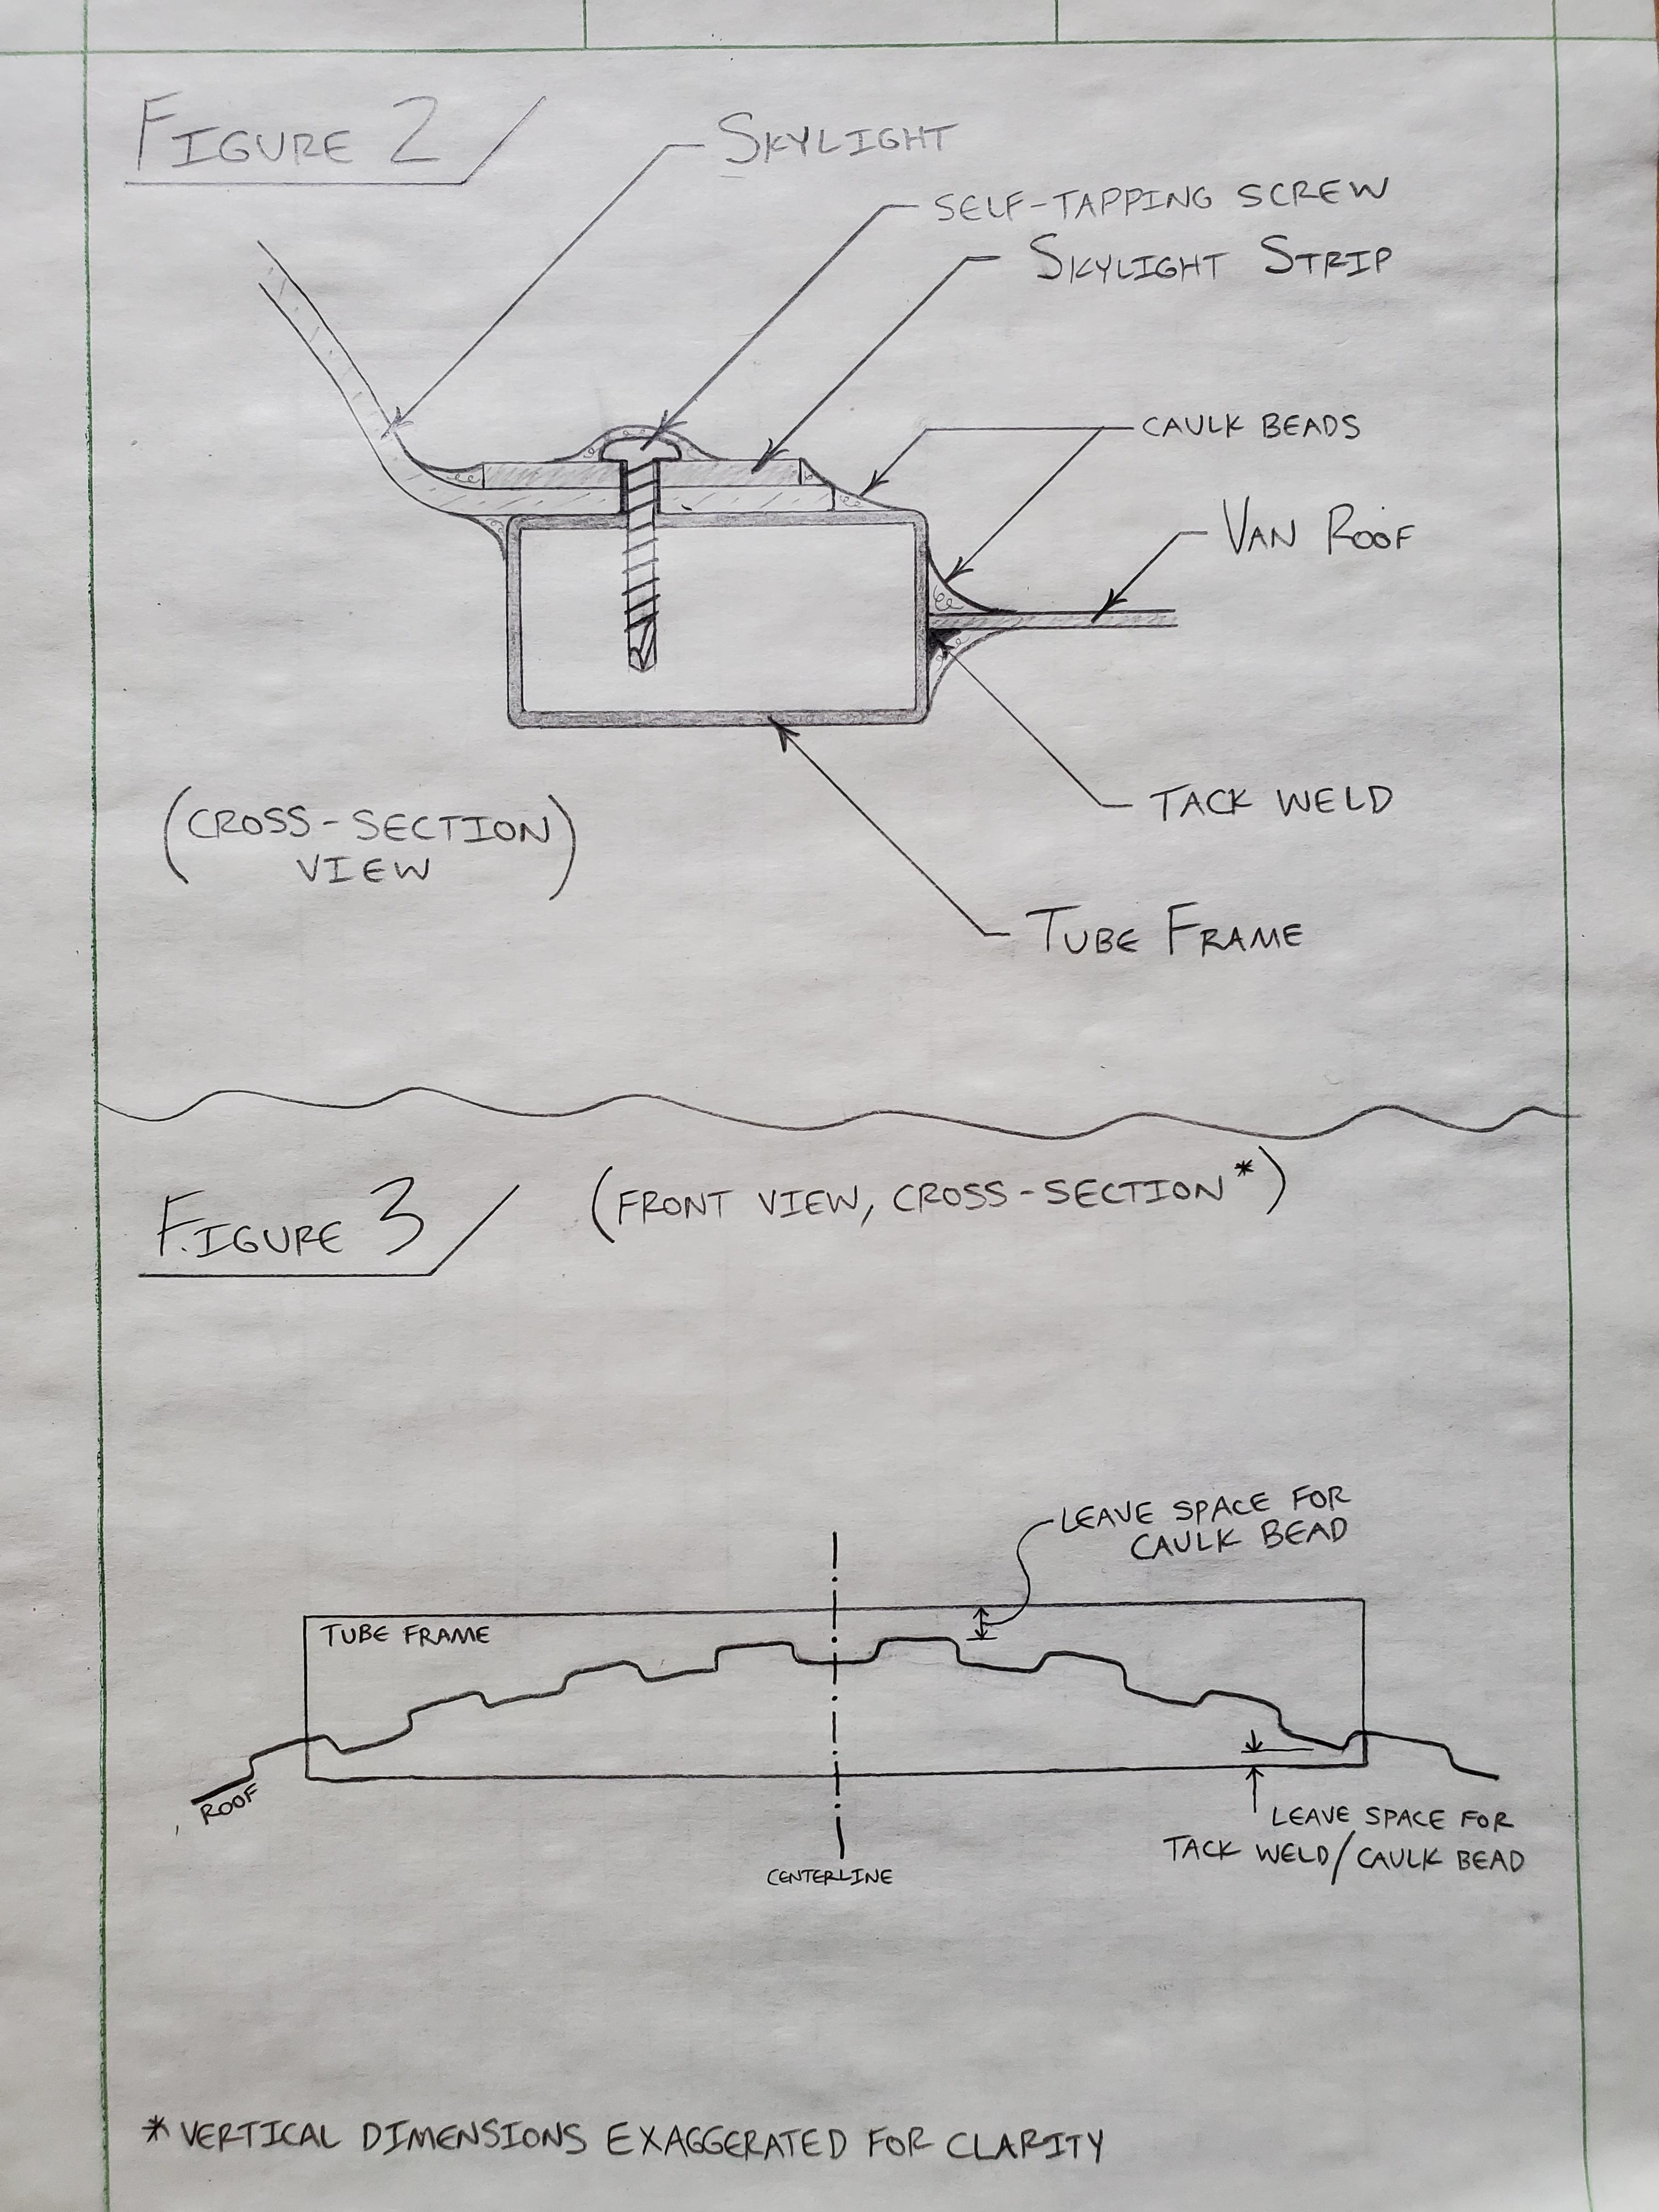 FIGURE 2
SKYLIGHT
SELF-TAPPING SCREW
SKYLIGHT STRIP
CAULK BEADS
VAN ROOF
TACK WELD
(CROSS-SECTION)
VIEW
TUBE FRAME
FIGURE 3
(FRONT VIEW, CROSS-SECTION*)
LEAVE SPACE FOR
CAULK BEAD
TUBE FRAME
ROOF
LEAVE SPACE FOR
TACK WELD/CAULK BEAD
CENTERLINE
*VERTICAL DIMENSIONS EXAGGERATED FOR CLARITY